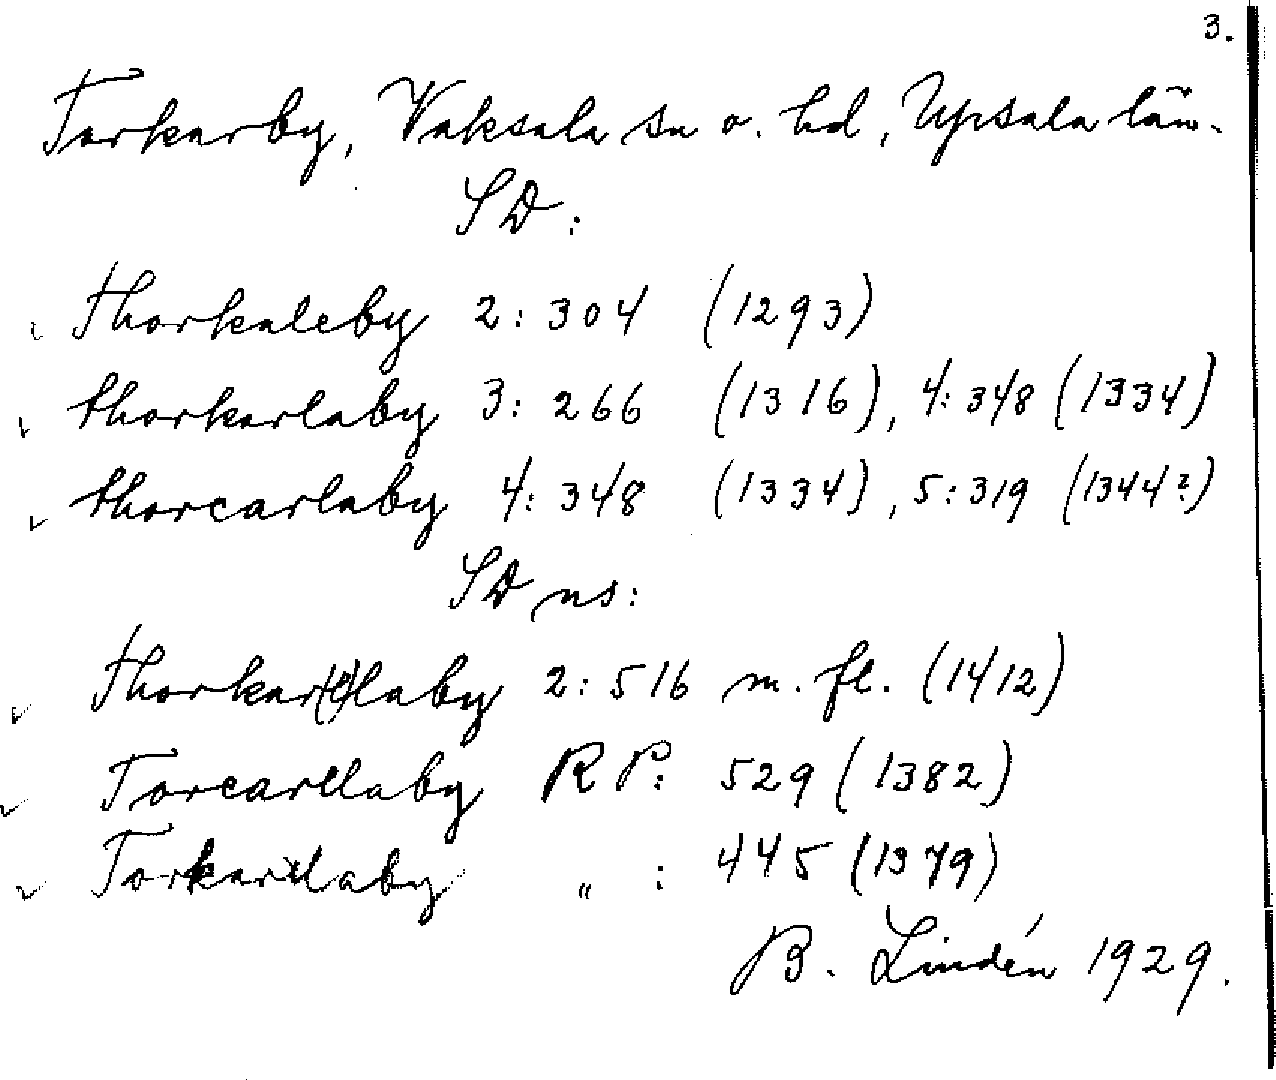 3.
Torkarby, Vaksala sn o. hd, Upsala län.
SD:
Thorkaleby 2:304 (1293)
thorkarlaby 3:266 (1316), 4:348 (1334)
thorcarlaby 4:348 (1334), 5:319 (1344?)
SD ns:
Thorkar(e)laby 2:516 m. fl. (1412)
Torcarllaby RP: 529 (1382)
Torkarlaby " : 445 (1379)
B. Lindén 1929.